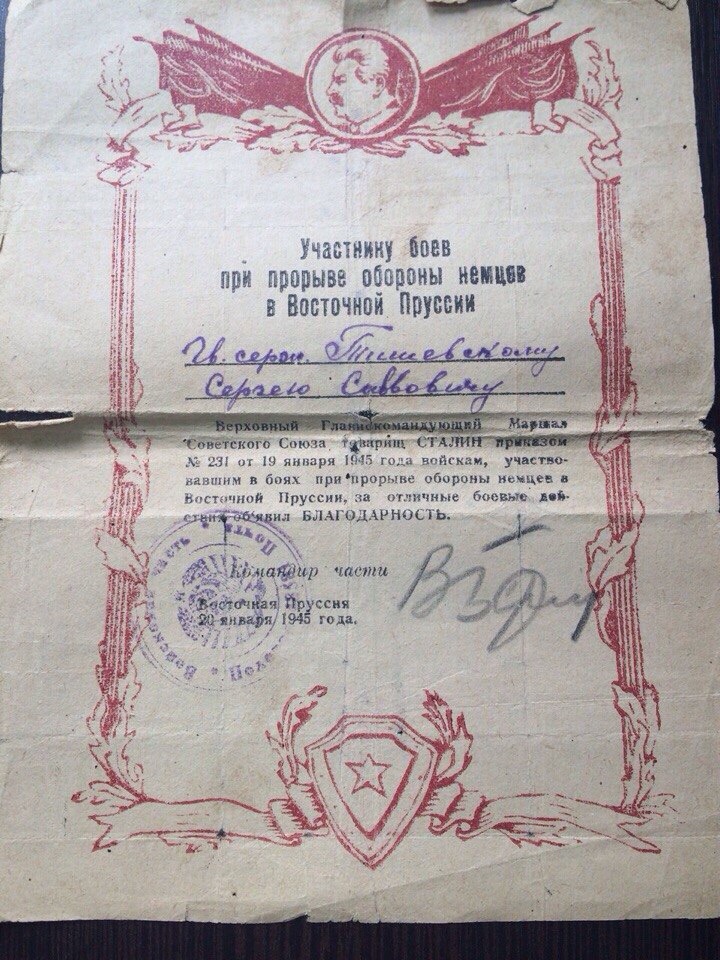 Участнику боев
при прорыве обороны немцев
в Восточной Пруссии
Гв. серж. Тишевскому
Сергею Саввовичу
Верховный Главнокомандующий Маршал
Советского Союза товарищ СТАЛИН приказом
№ 231 от 19 января 1945 года войскам, участво-
вавшим в боях при прорыве обороны немцев в
Восточной Пруссии, за отличные боевые дей-
ствия об'явил БЛАГОДАРНОСТЬ.
Командир части
Восточная Пруссия
20 января 1945 года.
Войсковая часть • Полевая Почта